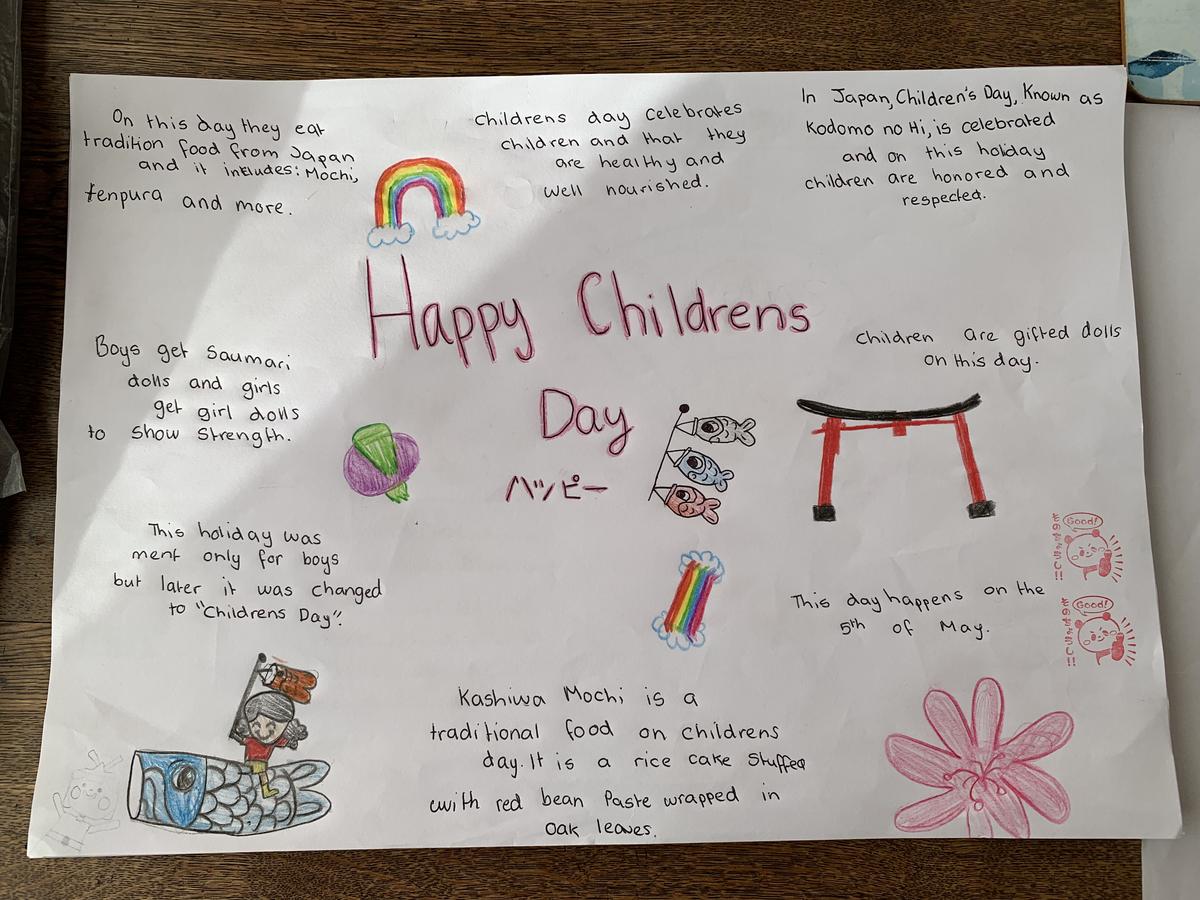 On this day they eat
tradition food from Japan
and it includes: Mochi,
tenpura and more.
childrens day celebrates
children and that they
are healthy and
well nourished.
In Japan, Children's Day, Known as
Kodomo no Hi, is celebrated
and on this holiday
children are honored and
respected.
Happy Childrens
Day
ハッピー
Boys get Saumari
dolls and girls
get girl dolls
to show strength.
Children are gifted dolls
on this day.
This holiday was
ment only for boys
but later it was changed
to "Childrens Day".
This day happens on the
5th of May.
Good!
Good!
Kashiwa Mochi is a
traditional food on childrens
day. It is a rice cake stuffed
with red bean Paste wrapped in
oak leaves.